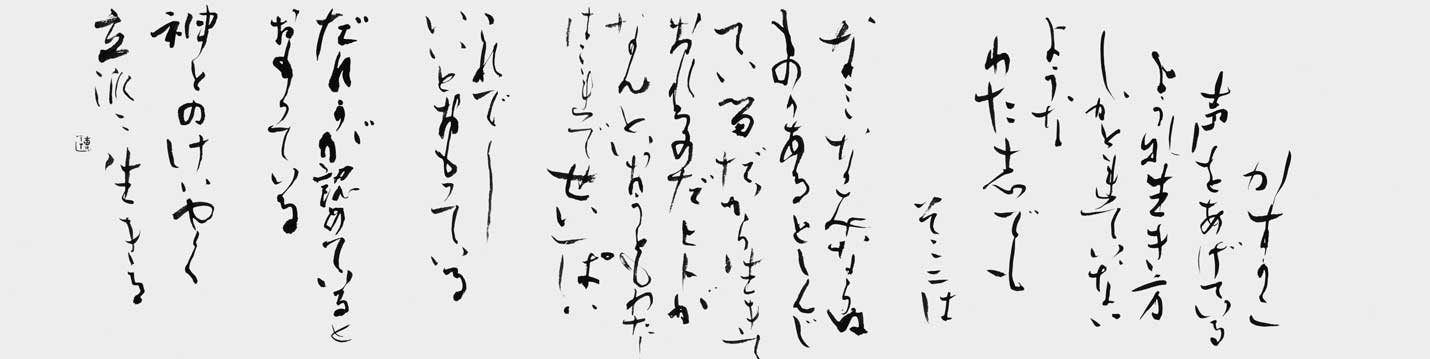 かすかに
声をあげている
ような生き方
していない
ような
わた志でも
そこには
なにかなさねばならぬ
ものがあるとしんじ
ている だから生きて
おれるのだ ヒトが
なんといおうともわたし
はこれでせいいっぱい
これで
いいとおもっている
だれかが認めていると
おもっている
神とのけいやく
立派に生きる